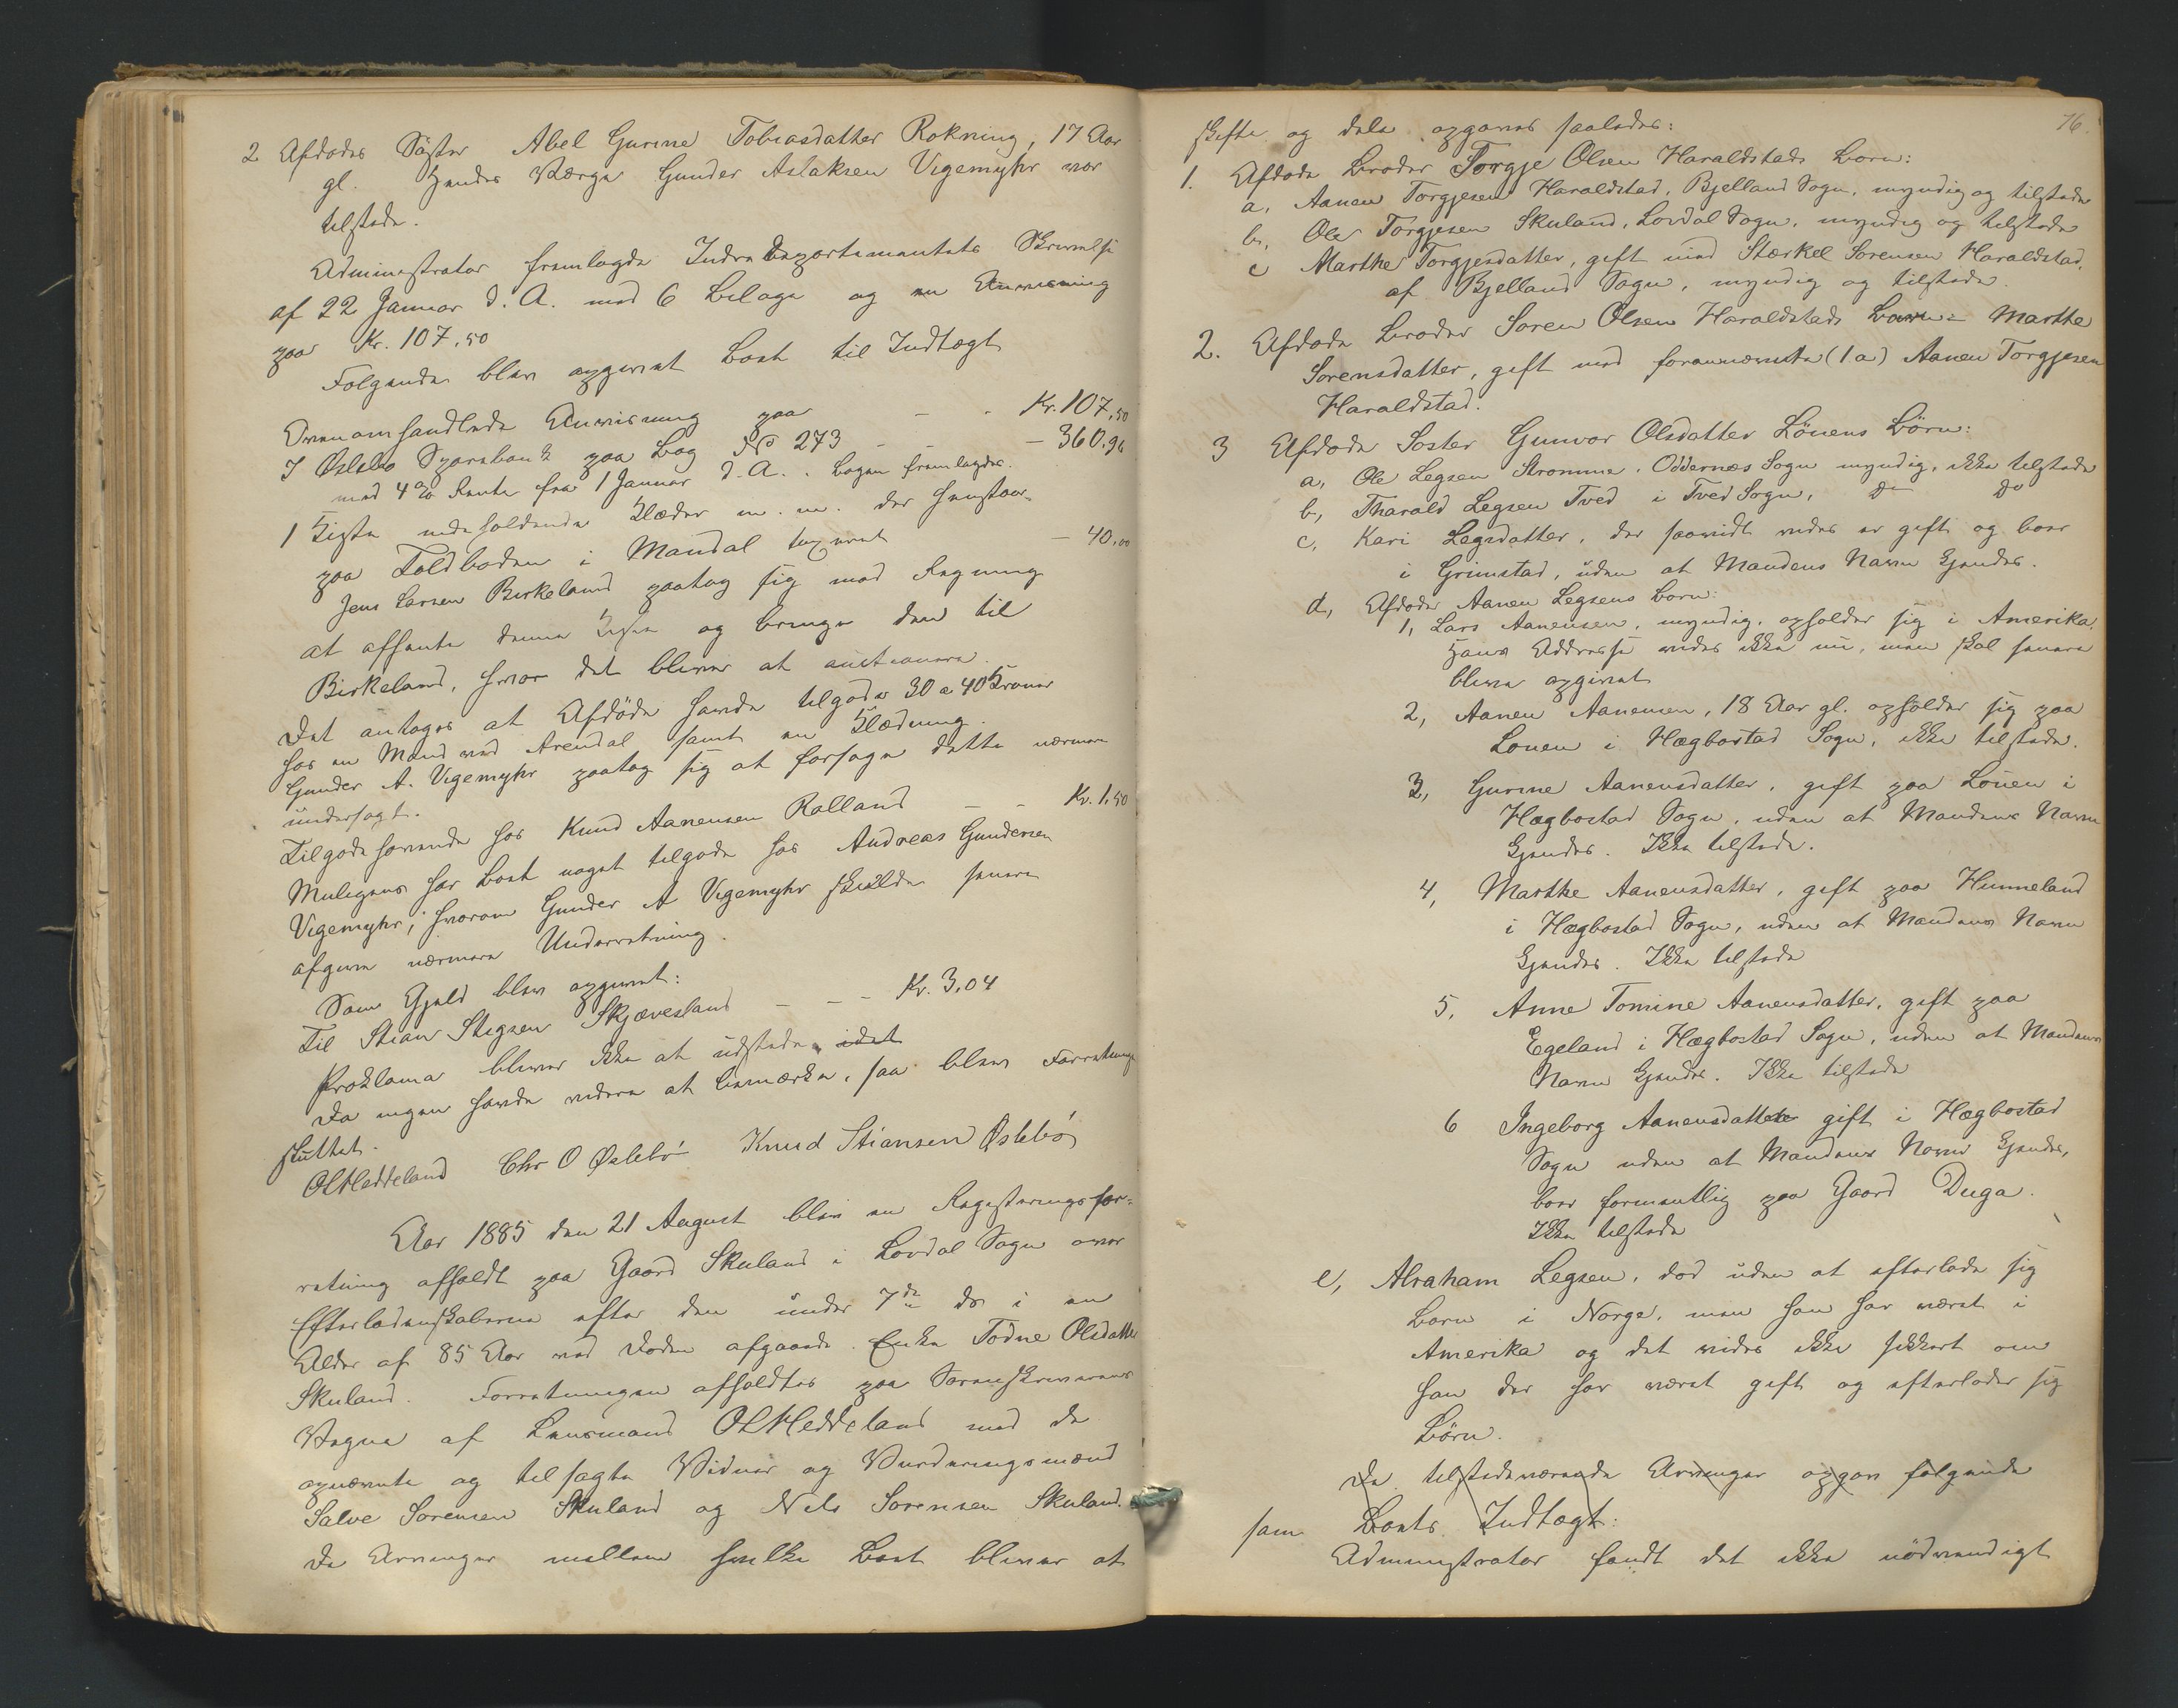 2 Afdødes Søster Abel Gurine Tobiasdatter Røkning, 17 Aar
gl. Hendes Værge Gunder Aslaksen Vigemyhr var
tilstede.
Administrator fremlagde Indredepartementets Skrivelse
af 22 Januar d. A. med 6 Bilage og en Anvisning
paa Kr. 107,50
Følgende blev opgivet Boet til Indtægt
Ovenomhandlede Anvisning paa - - Kr. 107,50
I Øslebø Sparebank paa Bog No 273 - - - 360,96
med 4% Rente fra 1 Januar d. A. Bogen fremlagdes.
1 Kiste indeholdende Klæder m. m. der henstaar
paa Toldboden i Mandal taxeret - 40,00
Jens Larsen Birkeland paatog sig mod Regning
at afhente denne Kiste og bringe den til
Birkeland, hvor det bliver at auctionere.
Det antages at Afdøde havde tilgode 30 a 40 Kroner
hos en Mand ved Arendal samt en Klædning.
Gunder A. Vigemyhr paatog sig at forsøge dette nærmere
undersøgt.
Tilgodehavende hos Knud Aanensen Ralland - - Kr. 1,50
Muligens har Boet noget tilgode hos Andreas Gundersen
Vigemyhr, hvorom Gunder A Vigemyhr skulde senere
afgive nærmere Underretning.
Som Gjæld blev opgivet:
Til Stian Stigsen Skjævesland - - - Kr. 3,04
Proklama bliver ikke at udstede, idet
Da ingen havde videre at bemærke, saa blev Forretningen
sluttet.
O Heddeland Chr O Øslebö Knud Stiansen Øslebö
Aar 1885 den 21 August blev en Registeringsfor=
retning afholdt paa Gaard Skuland i Løvdal Sogn over
Efterladenskaberne efter den under 7de ds i en
Alder af 85 Aar ved Døden afgaaede Enke Todne Olsdatter
Skuland. Forretningen afholdtes paa Sorenskriverens
Vegne af Lensmand O Heddeland med de
opnævnte og tilsagte Vidner og Vurderingsmænd
Salve Sørensen Skuland og Nils Sørensen Skuland.
De Arvinger mellem hvilke Boet bliver at
76.
skifte og dele opgaves saaledes:
1. Afdøde Broder Torgje Olsen Haraldstads Børn:
a, Aanen Torgjesen Haraldstad, Bjelland Sogn, myndig og tilstede
b, Ole Torgjesen Skuland, Løvdal Sogn, myndig og tilstede
c Marthe Torgjesdatter, gift med Stærkel Sørensen Haraldstad,
af Bjelland Sogn, myndig og tilstede.
2. Afdøde Broder Søren Olsen Haraldstads Barn: Marthe
Sørensdatter, gift med forannævnte (1a) Aanen Torgjesen
Haraldstad.
3 Afdøde Søster Gunvor Olsdatter Lönens Börn:
a, Ole Legsen Strømme, Oddernæs Sogn myndig, ikke tilstede
b, Tharald Legsen Tved i Tved Sogn, do do
c, Kari Legsdatter, der saavidt vides er gift og boer
i Grimstad, uden at Mandens Navn kjendes.
d, Afdøde Aanen Legsens Børn:
1, Lars Aanensen, myndig, opholder sig i Amerika.
Hans Addresse vides ikke nu, men skal senere
blive opgivet
2, Aanen Aanensen, 18 Aar gl. opholder sig paa
Lønen i Hægbostad Sogn, ikke tilstede.
3, Gurine Aanensdatter, gift paa Lönen i
Hægbostad Sogn, uden at Mandens Navn
kjendes. Ikke tilstede.
4, Marthe Aanensdatter, gift paa Hunneland
i Hægbostad Sogn, uden at Mandens Navn
kjendes. Ikke tilstede
5, Anne Tomine Aanensdatter, gift paa
Egeland i Hægbostad Sogn, uden at Mandens
Navn kjendes. Ikke tilstede
6 Ingeborg Aanensdatter gift i Hægbostad
Sogn uden at Mandens Navn kjendes,
boer formentlig paa Gaard Duga.
Ikke tilstede
e, Abraham Legsen, død uden at efterlade sig
Børn i Norge, men han har været i
Amerika og det vides ikke sikkert om
han der har været gift og efterlader sig
Börn.
De tilstedeværende Arvinger opgav følgende
som Boets Indtægt:
Administrator fandt det ikke nödvendigt